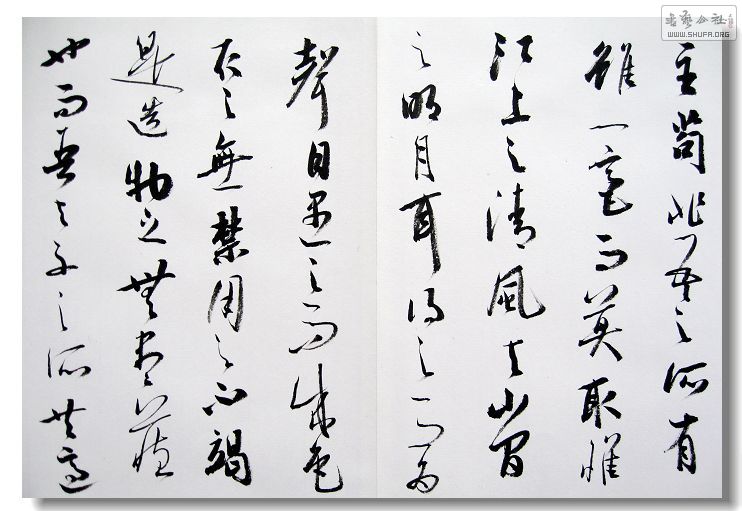 主苟非吾之所有
雖一毫而莫取惟
江上之清風与山間
之明月耳得之而為
聲目遇之而成色
取之無禁用之不竭
是造物之無盡藏
也而吾与子之所共適
書藝公社
WWW.SHUFA.ORG